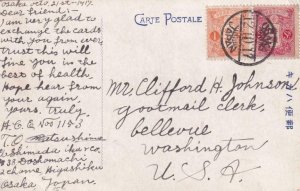 Osaka Oct. 21st - 1917.
Dear friend:-
I am very glad to
exchange the cards
with you from over
trust this will
fine you in the
best of health.
Hope hear from
your again.
yours, truly.
H.C.E No 1193
T.C.
Shimada
Doshomachi
Higashiku
Osaka Japan.
CARTE POSTALE
Mr. Clifford H. Johnson.
Post mail clerk.
bellevue
Washington
U. S. A.
きかは便郵